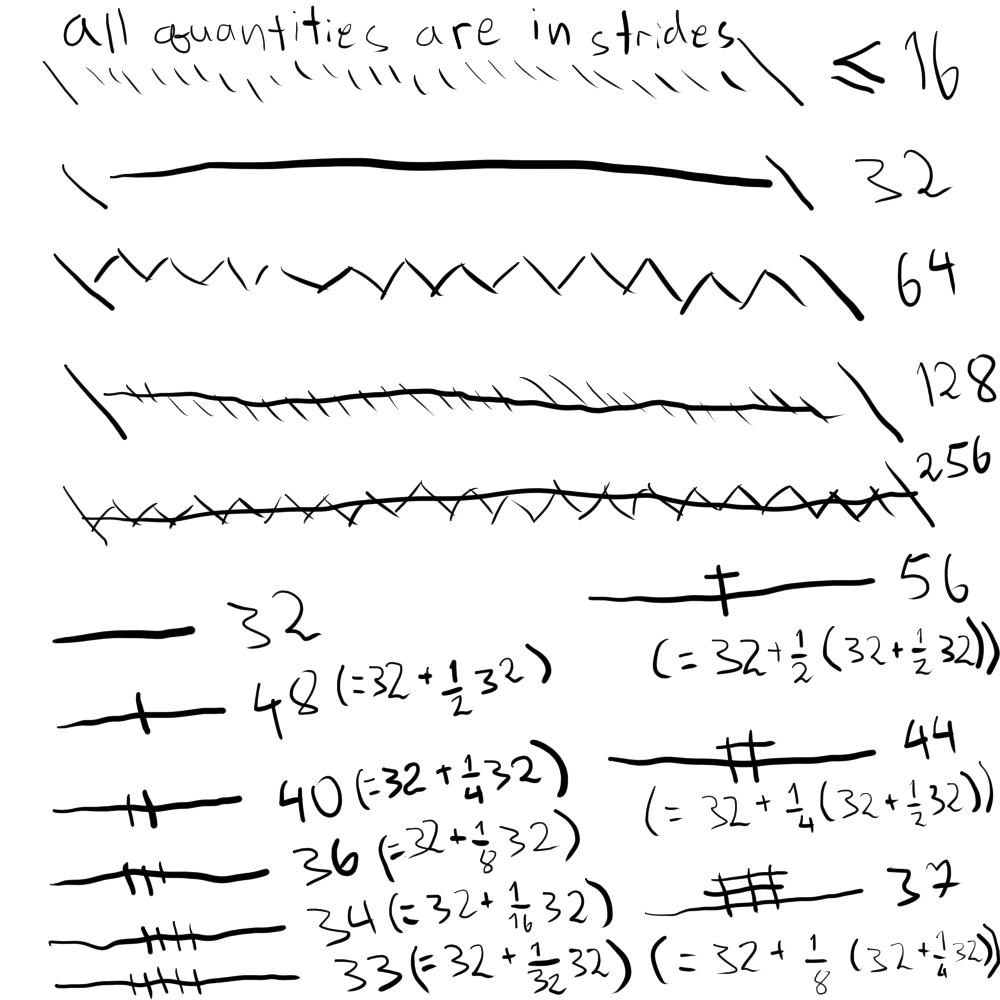 all quantities are in strides
≤ 16
32
64
128
256
32
48 (=32 + 1/2 32)
40 (=32 + 1/4 32)
36 (=32 + 1/8 32)
34 (=32 + 1/16 32)
33 (=32 + 1/32 32)
56
(= 32 + 1/2 (32 + 1/2 32))
44
(= 32 + 1/4 (32 + 1/2 32))
37
(= 32 + 1/8 (32 + 1/4 32))